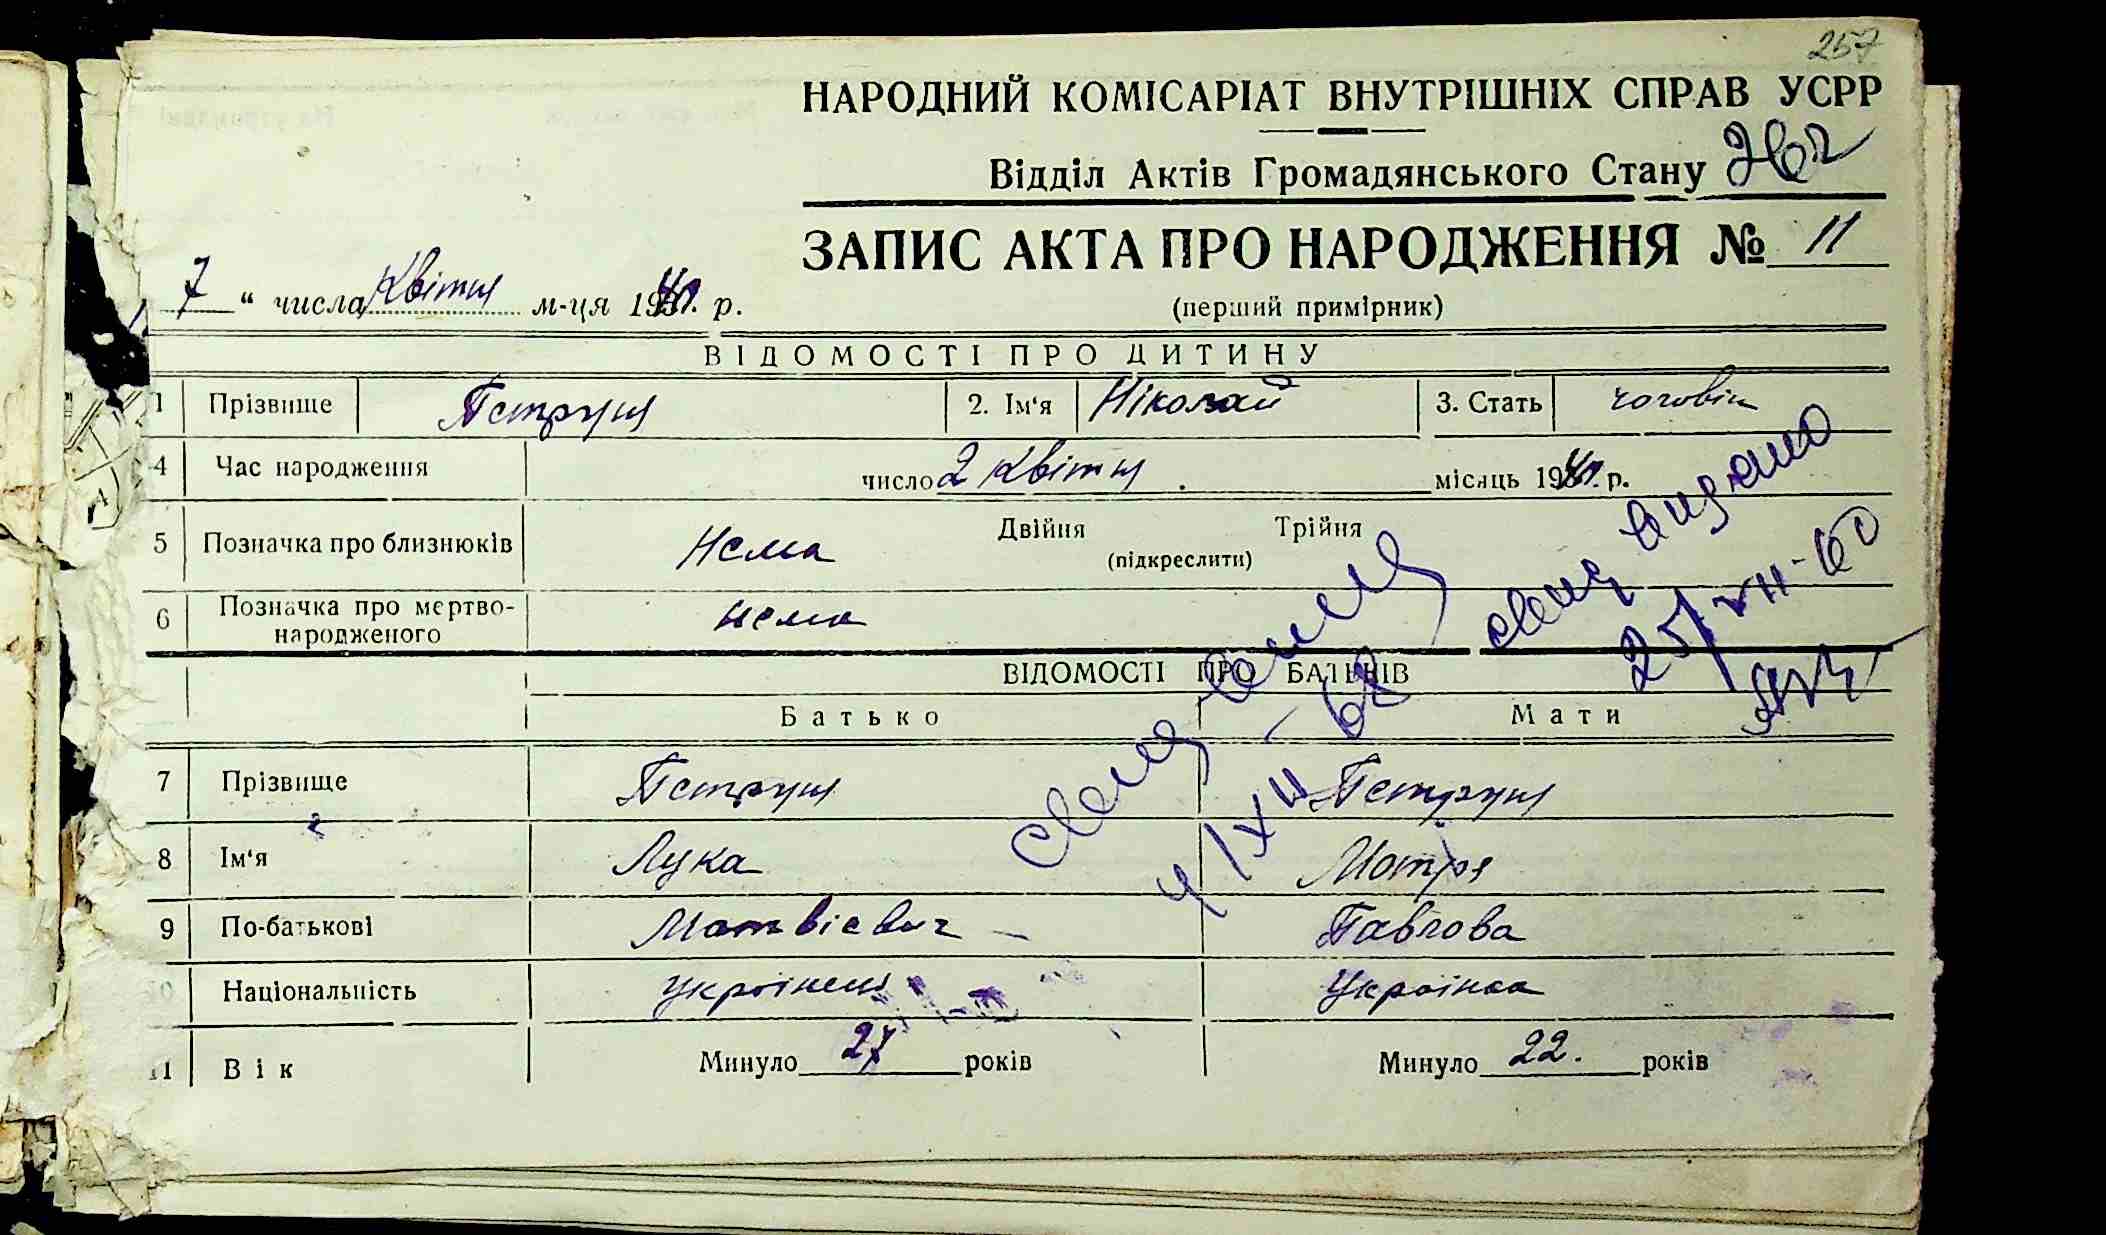 257
НАРОДНИЙ КОМІСАРІАТ ВНУТРІШНІХ СПРАВ УСРР
Відділ Актів Громадянського Стану 262
ЗАПИС АКТА ПРО НАРОДЖЕННЯ № 11
7 " числа Квітня м-ця 19 р.
(перший примірник)
ВІДОМОСТІ ПРО ДИТИНУ
1 Прізвище Петруня 2. Ім'я Ніколай 3. Стать чоловік
4 Час народження число 2 Квітня місяць 19 р.
5 Позначка про близнюків Нема Двійня Трійня
(підкреслити)
6 Позначка про мертво-
народженого нема
свид видано
25/VII-60
ВІДОМОСТІ ПРО БАТЬКІВ
Батько Мати
7 Прізвище Петруня Петруня
8 Ім'я Лука Мотря
9 По-батькові Матвієвич Павлова
10 Національність Українець Українка
11 Вік Минуло 27 років Минуло 22. років
свид
4/XII-62